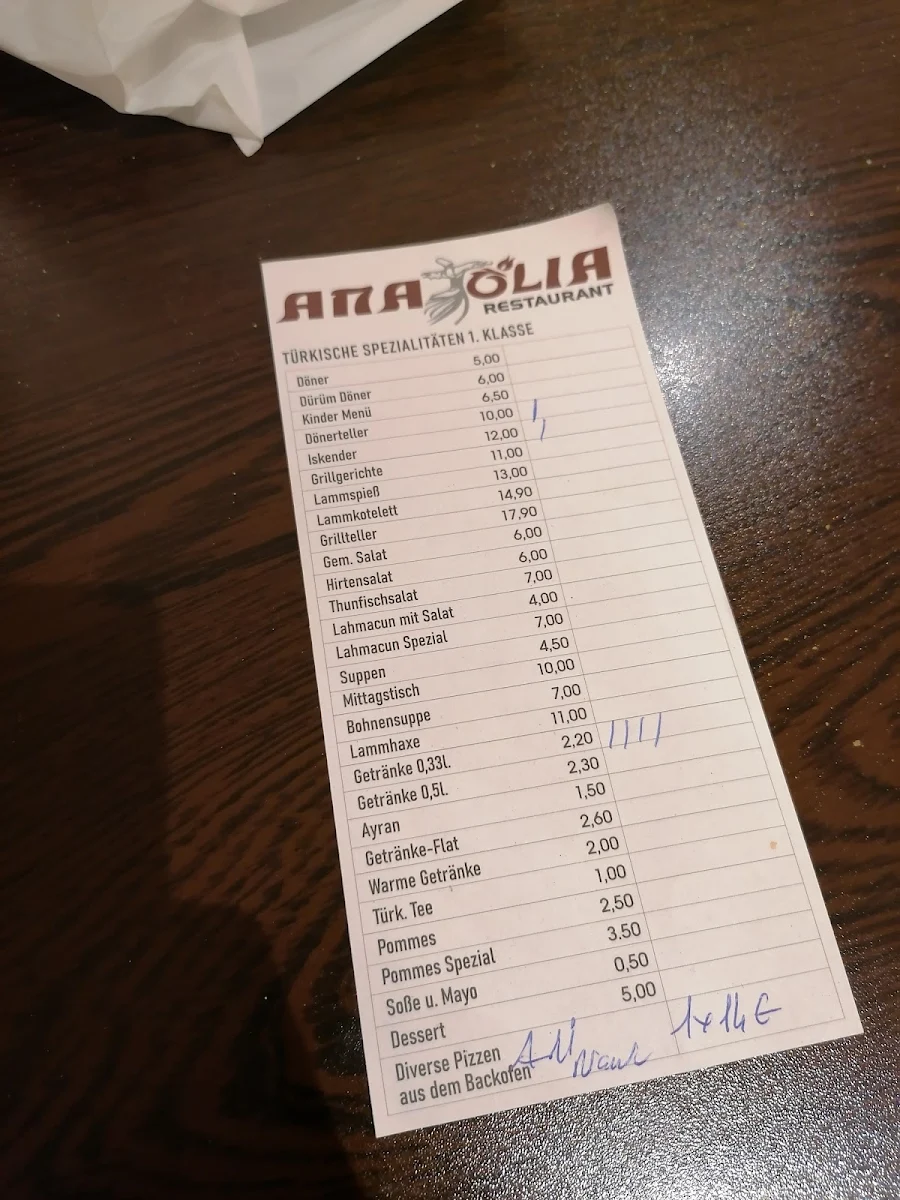 ANATOLIA
RESTAURANT
TÜRKISCHE SPEZIALITÄTEN 1. KLASSE
Döner 5,00
Dürüm Döner 6,00
Kinder Menü 6,50
Dönerteller 10,00
Iskender 12,00
Grillgerichte 11,00
Lammspieß 13,00
Lammkotelett 14,90
Grillteller 17,90
Gem. Salat 6,00
Hirtensalat 6,00
Thunfischsalat 7,00
Lahmacun mit Salat 4,00
Lahmacun Spezial 7,00
Suppen 4,50
Mittagstisch 10,00
Bohnensuppe 7,00
Lammhaxe 11,00
Getränke 0,33l. 2,20
Getränke 0,5l. 2,30
Ayran 1,50
Getränke-Flat 2,60
Warme Getränke 2,00
Türk. Tee 1,00
Pommes 2,50
Pommes Spezial 3.50
Soße u. Mayo 0,50
Dessert 5,00
Diverse Pizzen 1x14€
aus dem Backofen